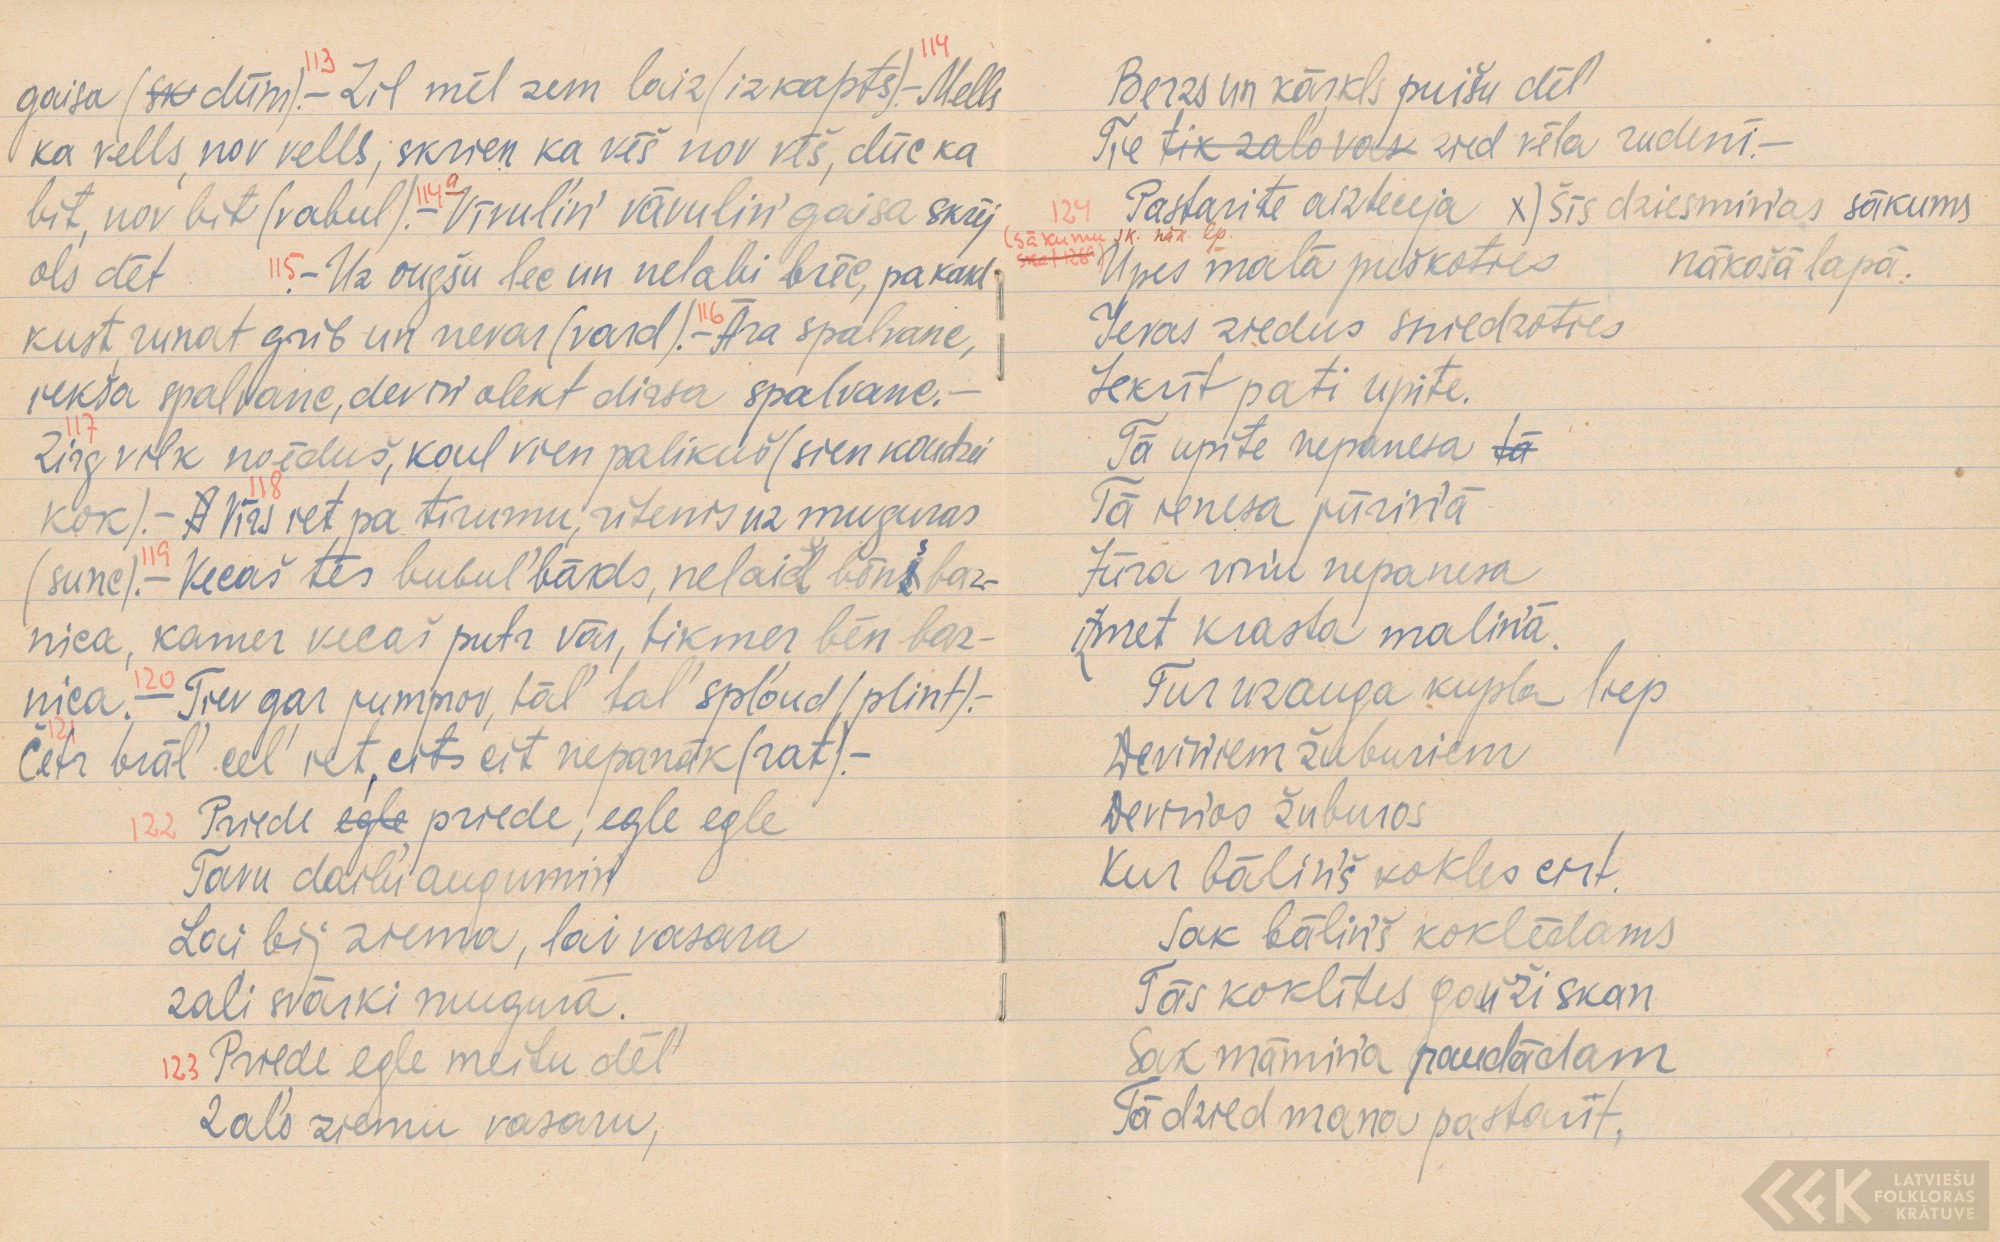 gaisa (sk dūm).- 113 Zil mēl zem laiz (izkapts).- 114 Mells
ka vells, nov vells, skrien ka vēš nov vēš, dūc ka
bit, nov bit (vabul).- 114a Vīvulīn' vāvulin' gaisa skrēj
ols dēt 115.- Uz ougšu lec un nelabi brēc, pakakl
kust, runat grib un nevar (vard).- 116 Āra spalvane,
iekša spalvane, devin' olekt dirsa spalvane.-
117 Zirg vilk noēduš, koul vien palikuš (sien koudzei
kok).- 118 Vīrs iet pa tīrumu, ritenis uz muguras
(sunc).- 119 Vecaš tēs bubul'bārds, nelaid bōns baz-
nica, kamer vecaš putr vār, tikmer bēn baz-
nica.- 120 Tiev gar jumprov, tāl' tal' spl'oud (plint).-
121 Četr brāl' cel' iet, cits cit nepanāk (rat).-
122 Priede egle priede, egle egle
Tavu dail'u augumin'
Lai bij ziema, lai vasara
zali svārki mugurā.
123 Priede egle meitu dēl'
Zal'o ziemu vasaru,
Berzs un kārkls puišu dēl'
Tie tik zal'o vas zied vēla rudenī.-
124 Pastarite aizteceja x) Šīs dziesmin'as sākums
(sākumu sk. nāk. lp.
Upes malā puškoties nākošā lapā.
Ievas ziedus sniedzoties
Iekrīt pati upite.
Tā upite nepanesa tā
Tā ienesa jūrin'ā
Jūra vin'u nepanesa
izmet krasta malin'ā.
Tur uzauga kupla liep
Devin'iem žuburiem
Devin'os žuburos
Kur bālin'š kokles cirt.
Sak bālin'š koklēdams
Tās koklītes gauži skan
Sak māmin'a raudādam
Tā dzied mana pastarīt,
LATVIEŠU
FOLKLORAS
KRĀTUVE